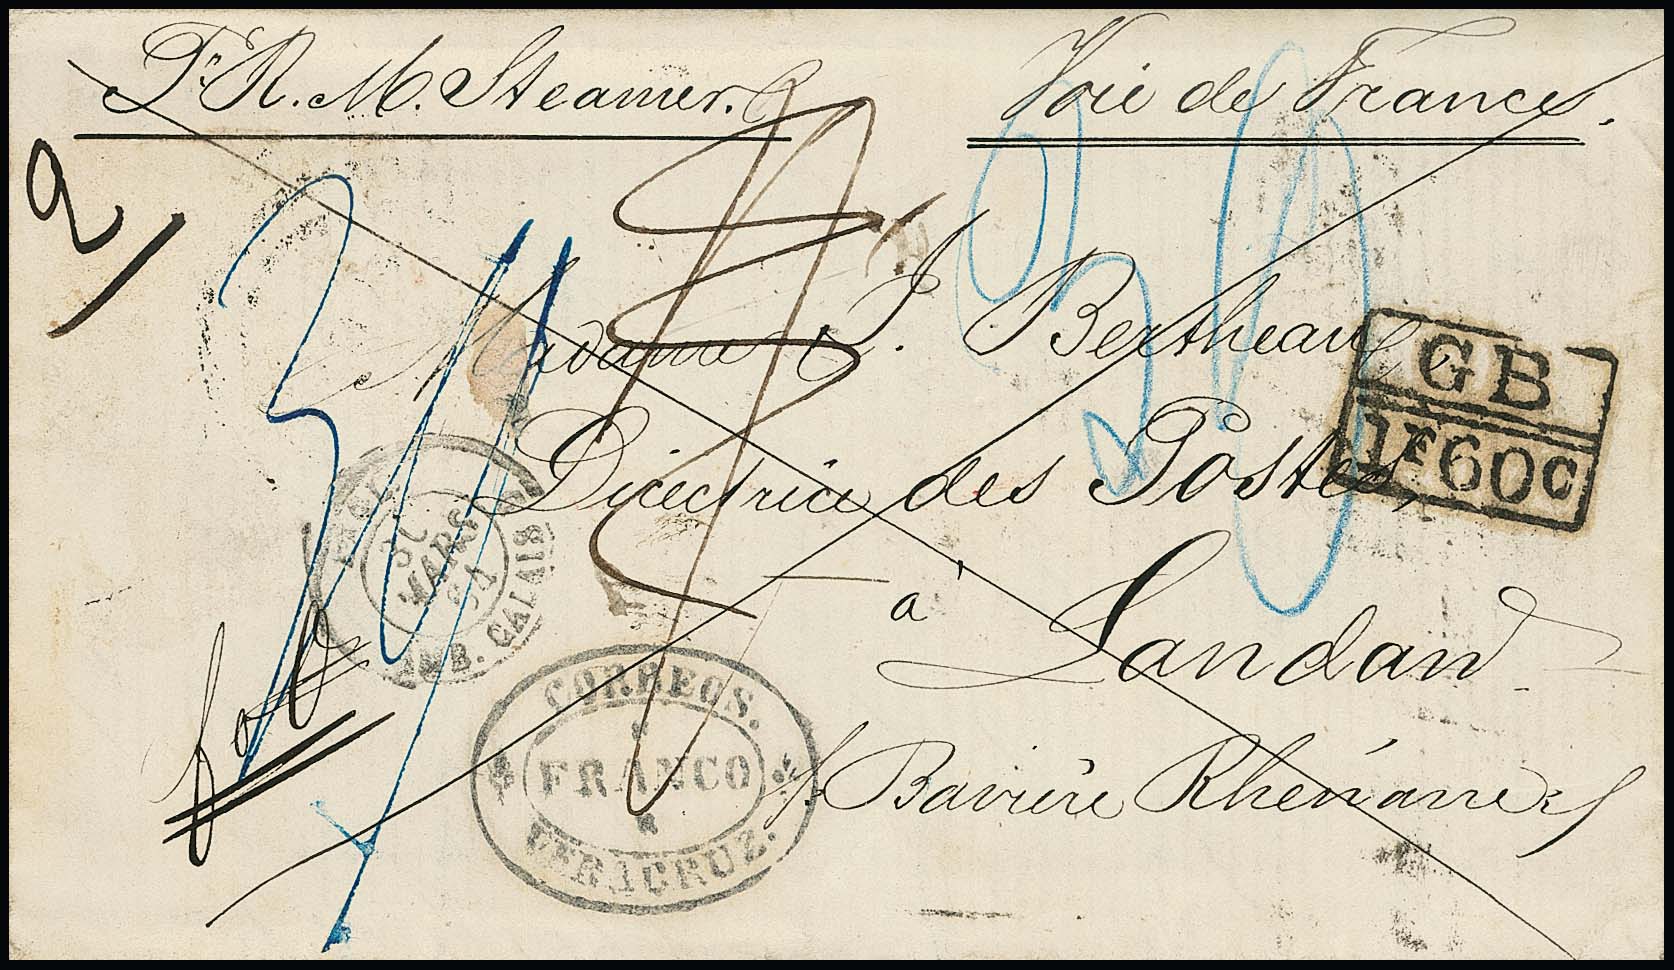 Pr. R. M. Steamer.
Voie de France.
2/
Madame J. Bertheau,
GB
1F60C
Directrice des Postes,
ANGL.
30
MARS
61
AMB. CALAIS
à Landau
CORREOS.
FRANCO
VERACRUZ.
s/ Bavière Rhénane